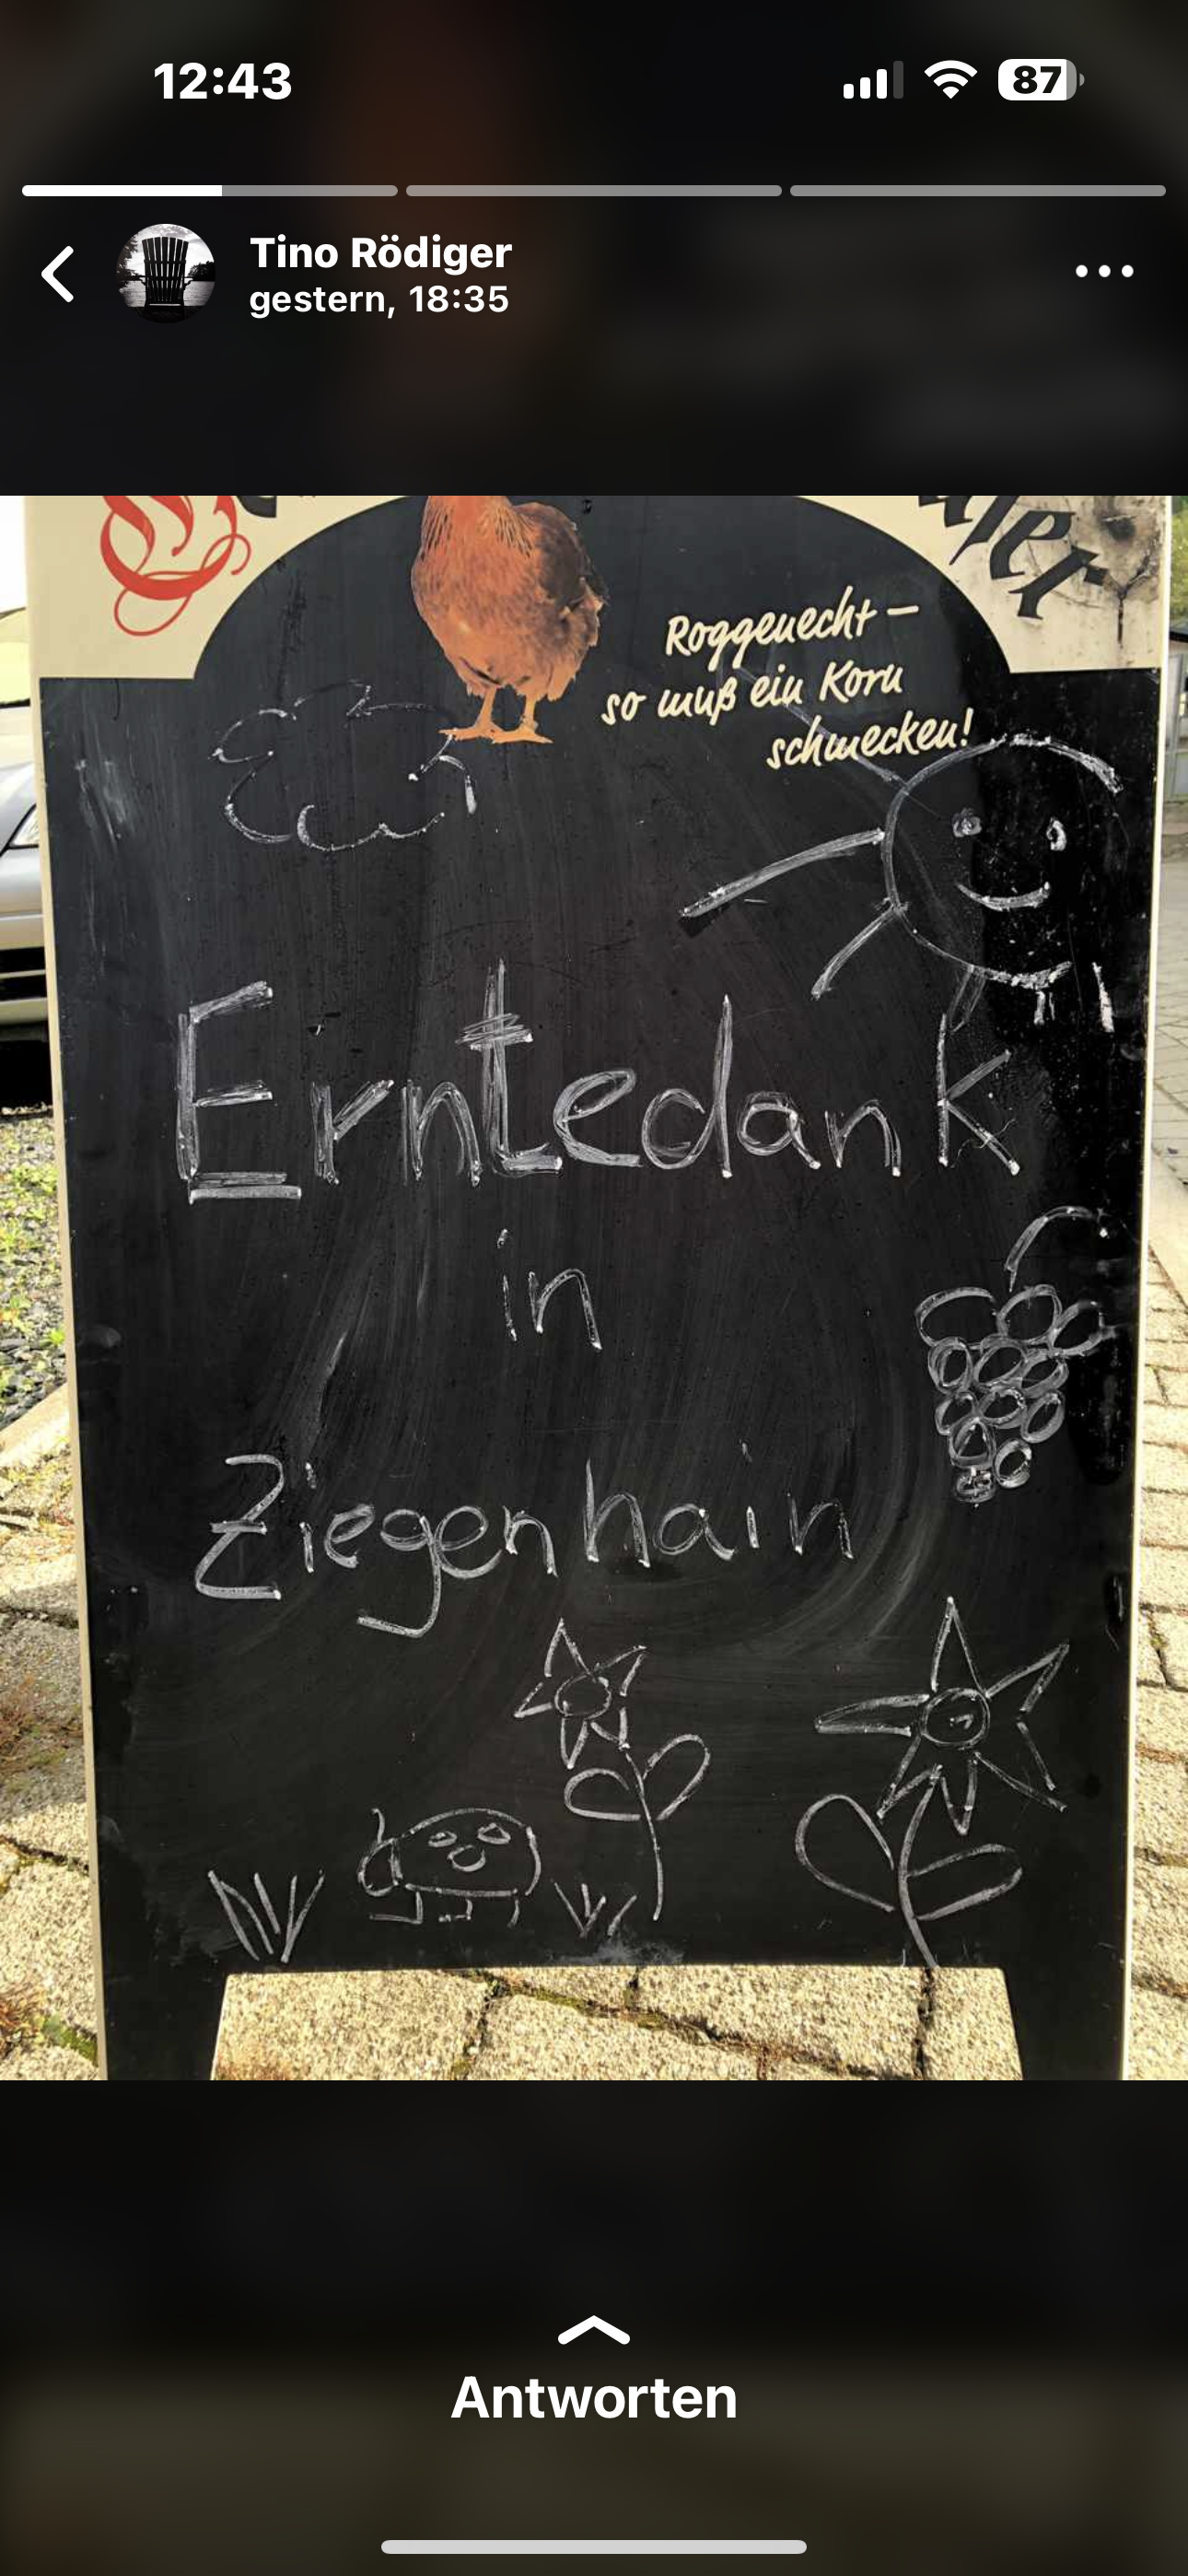 12:43
87
Tino Rödiger
gestern, 18:35
Roggenecht –
so muß ein Korn
schmecken!
Erntedank
in
Ziegenhain
Antworten